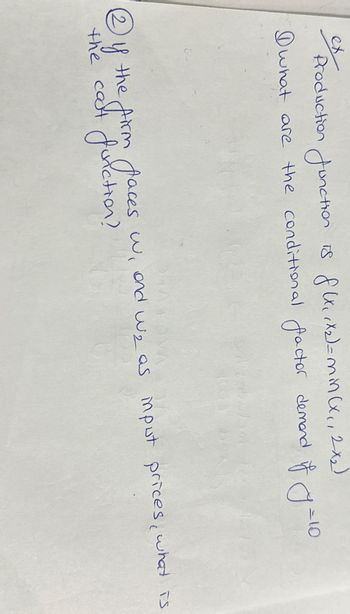 ex
Production function is f(x₁,x₂)=min(x₁, 2x₂)
① what are the conditional factor demand if y=10
② If the firm faces w₁ and w₂ as input prices, what is
the cost function?